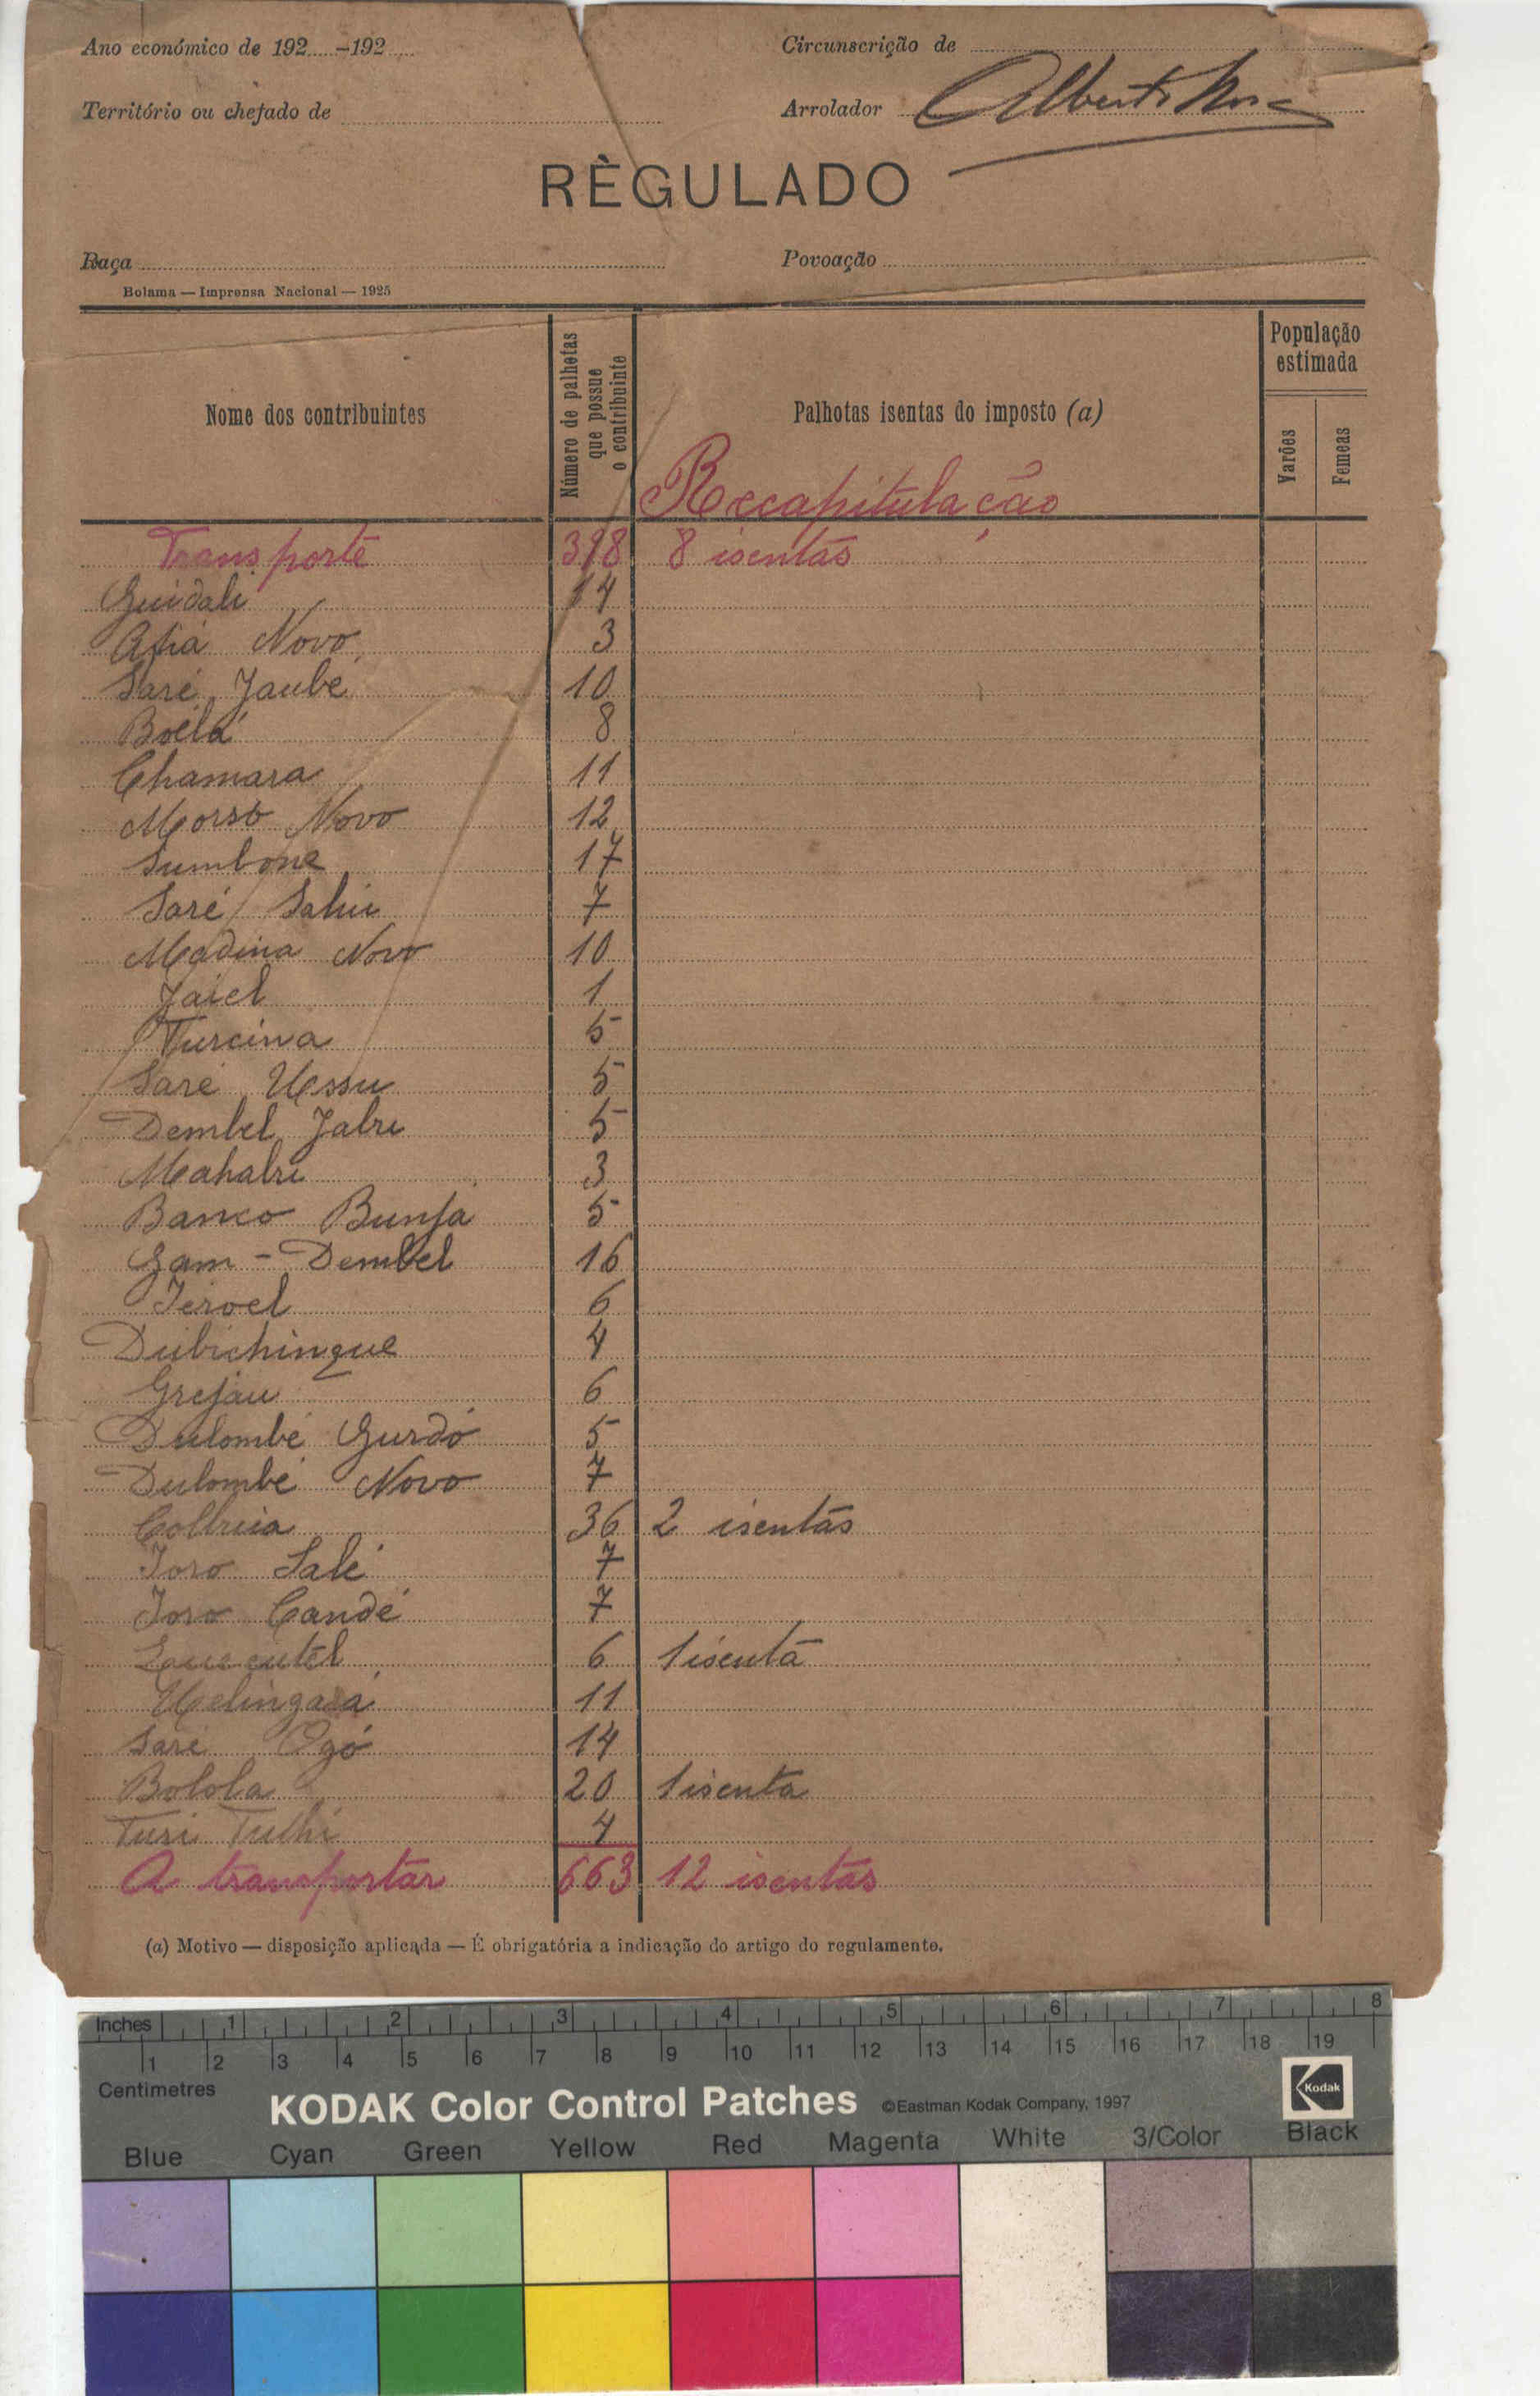 Ano económico de 192 –192
Circunscrição de
Território ou chefado de
Arrolador Alberto
RÈGULADO
Raça
Povoação
Bolama — Imprensa Nacional — 1925
Nome dos contribuintes
Número de palhotas que possue o contribuinte
Palhotas isentas do imposto (a)
População estimada
Varões
Femeas
Recapitulação
Transporte 398 8 isentas
Guidali 14
Afiá Novo 3
Saré Jaube 10
Boélá 8
Chamara 11
Morso Novo 12
Sumbone 17
Saré Saliu 7
Madina Novo 10
Jaiel 1
Turcina 5
Saré Ussu 5
Dembel Jabri 5
Mahabri 3
Banco Bunja 5
Gam - Dembel 16
Jeroel 6
Dubichingue 4
Grejau 6
Dulombé Gurdó 5
Dulombé Novo 7
Colbuia 36 2 isentas
Joro Salé 7
Joro Candé 7
6 1 isenta
11
Saré Ogó 14
Bolola 20 1 isenta
Turi Tulhi 4
A transportar 663 12 isentas
(a) Motivo — disposição aplicada — É obrigatória a indicação do artigo do regulamento.
Inches 1 2 3 4 5 6 7 8
1 2 3 4 5 6 7 8 9 10 11 12 13 14 15 16 17 18 19
Centimetres
KODAK Color Control Patches ©Eastman Kodak Company, 1997 Kodak
Blue Cyan Green Yellow Red Magenta White 3/Color Black